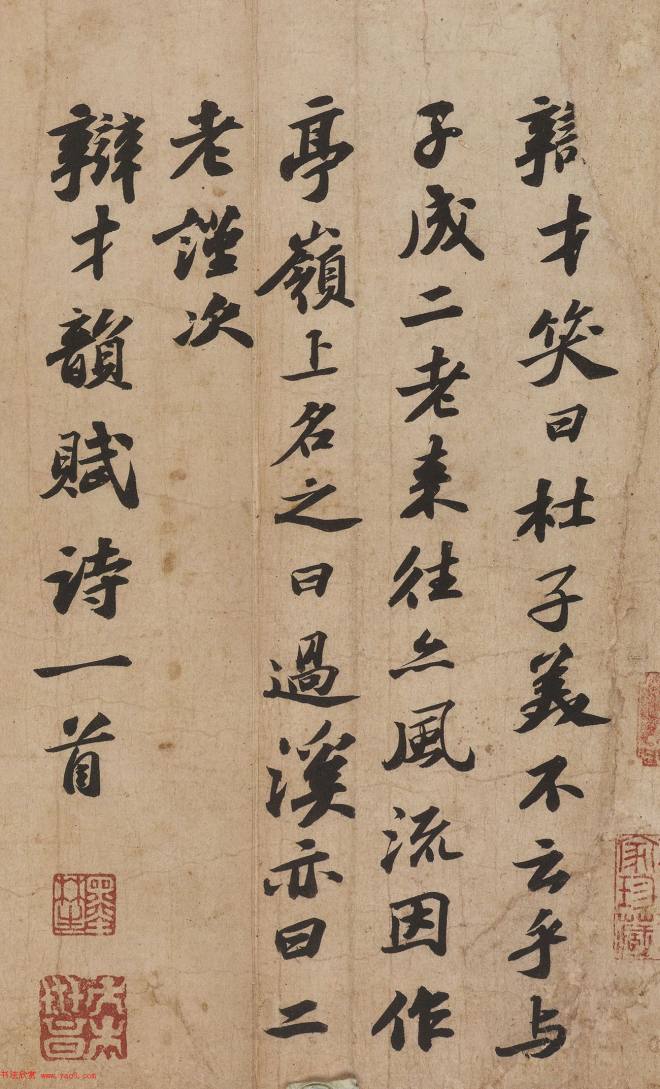 辯才笑曰杜子美不云乎与
子成二老来往亦風流因作
亭嶺上名之曰過溪亦曰二
老謹次
辯才韻賦詩一首
家珍藏
书法欣赏 www.yac8.com